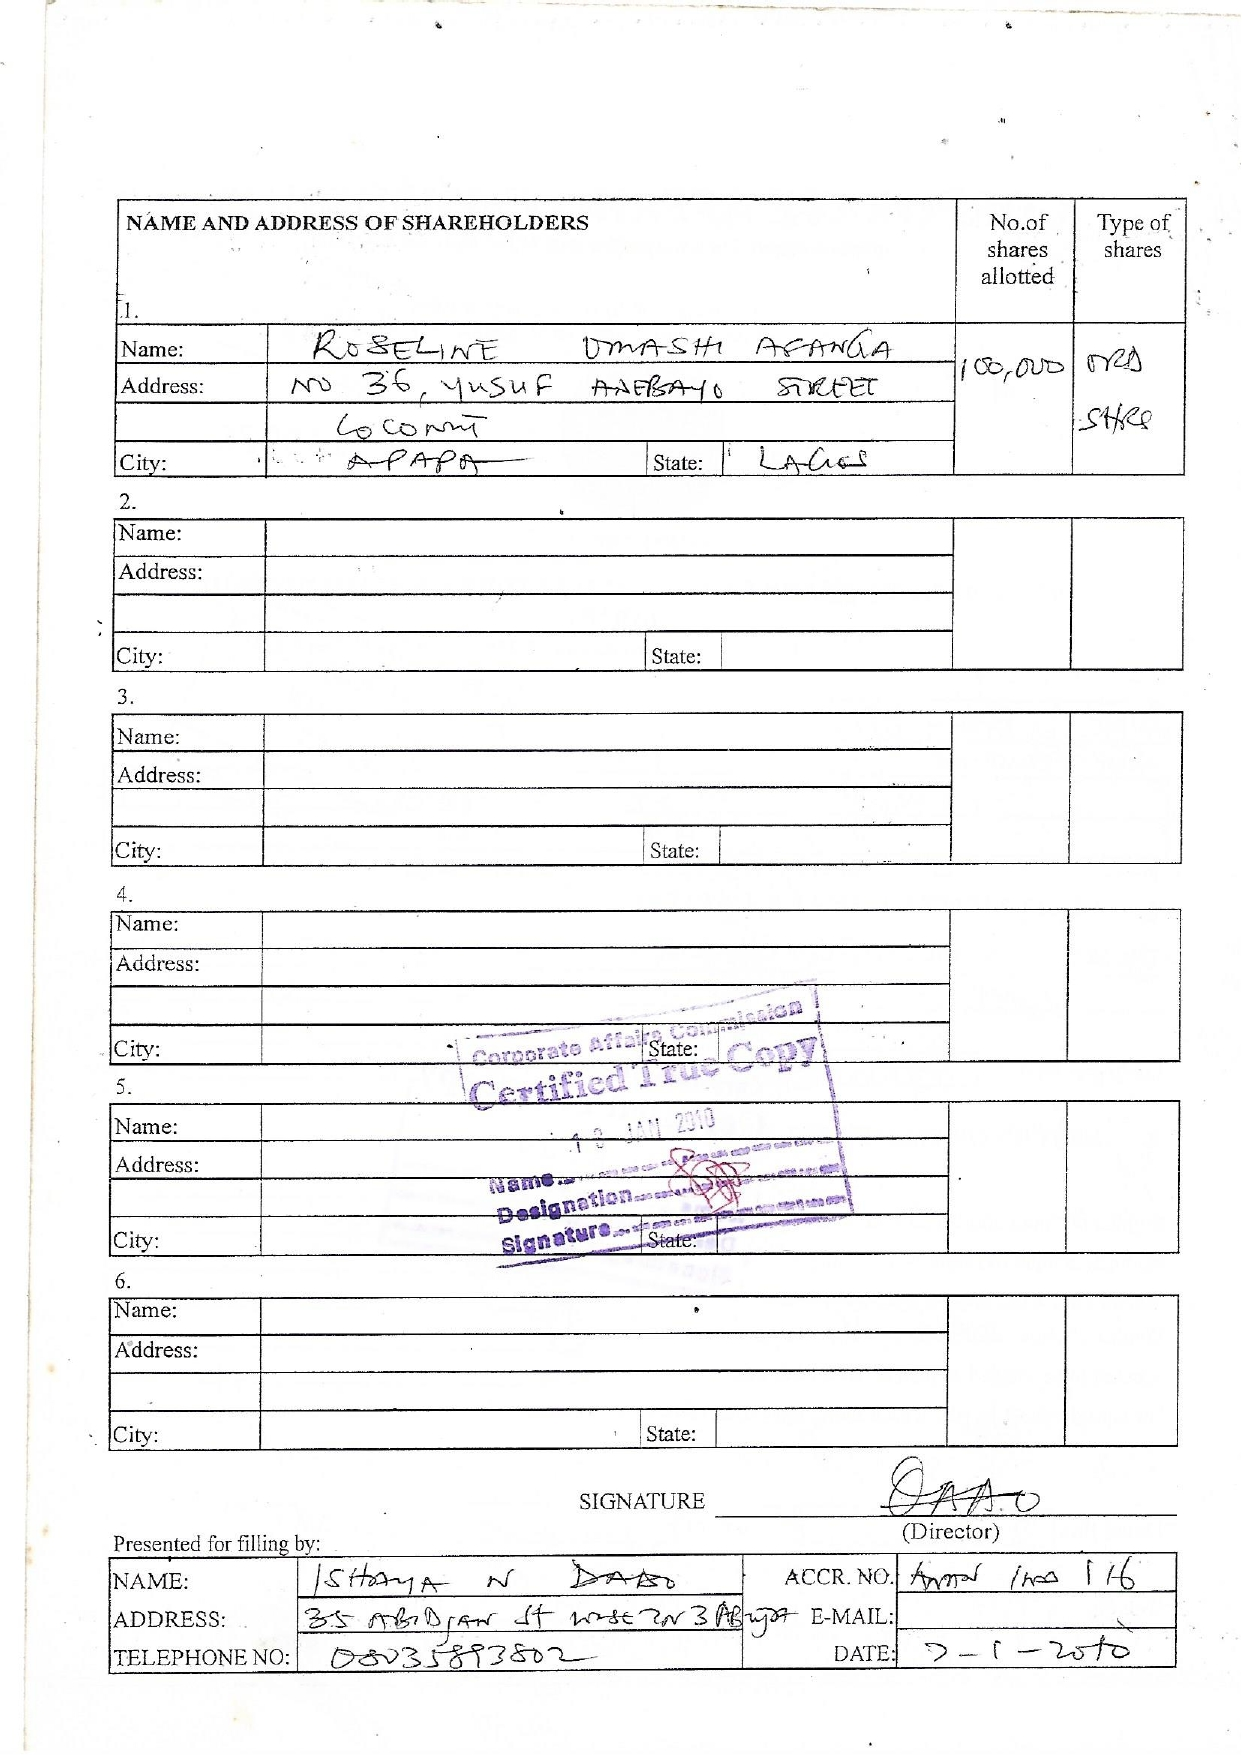 NAME AND ADDRESS OF SHAREHOLDERS No.of shares allotted Type of shares
1.
Name: ROSELINE UMASHI AFANGA 100,000 ORD
Address: NO 36, YUSUF ADEBAYO STREET SHRS
COCONUT
City: APAPA State: LAGOS
2.
Name:
Address:
City: State:
3.
Name:
Address:
City: State:
4.
Name:
Address:
City: State:
Corporate Affairs Commission
Certified True Copy
5.
JAN 2010
Name:
Address:
Name
Designation
Signature
City: State:
6.
Name:
Address:
City: State:
SIGNATURE
(Director)
Presented for filling by:
NAME: ISHAYA N DABO ACCR. NO.
ADDRESS: 35 ABIDJAN St WUSE ZN 3 ABUJA E-MAIL:
TELEPHONE NO: 08035893802 DATE: 7-1-2010